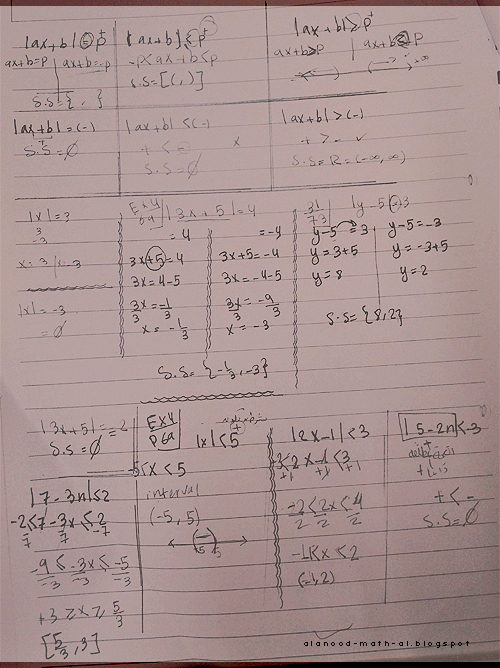 |ax+b| = p⁺
ax+b=p | ax+b=-p
S.S={ , }
|ax+b| < p⁺
-p<ax+b<p
S.S=[( , )]
|ax+b| > p⁺
ax+b>p
|ax+b|=(-)
S.S=∅
|ax+b|<(-)
+<-
x
S.S=∅
|ax+b|>(-)
+>- ✓
S.S=R=(-∞,∞)
|x|=3
3
-3
x=3 /x-3
|x|=-3
=∅
Ex4
|3x+5|=4
=4
3x+5=4
3x=4-5
3x/3=-1/3
x=-1/3
=-4
3x+5=-4
3x=-4-5
3x/3=-9/3
x=-3
S.S={-1/3,-3}
31/73
|y-5|=3
y-5=3
y=3+5
y=8
y-5=-3
y=-3+5
y=2
S.S={8,2}
|3x+5|=-2
S.S=∅
Ex4
|x|<5
-5<x<5
interval
(-5,5)
-5 5
|2x-1|<3
-3<2x-1<3
+1 +1 +1
-2/2<2x/2<4/2
-1<x<2
(-1,2)
|5-2n|<-3
+<-
S.S=∅
|7-3n|≤2
-2≤7-3x≤2
-7 -7 -7
-9/-3≤-3x/-3≤-5/-3
+3≥x≥5/3
[5/3,3]
alanood-math-al.blogspot